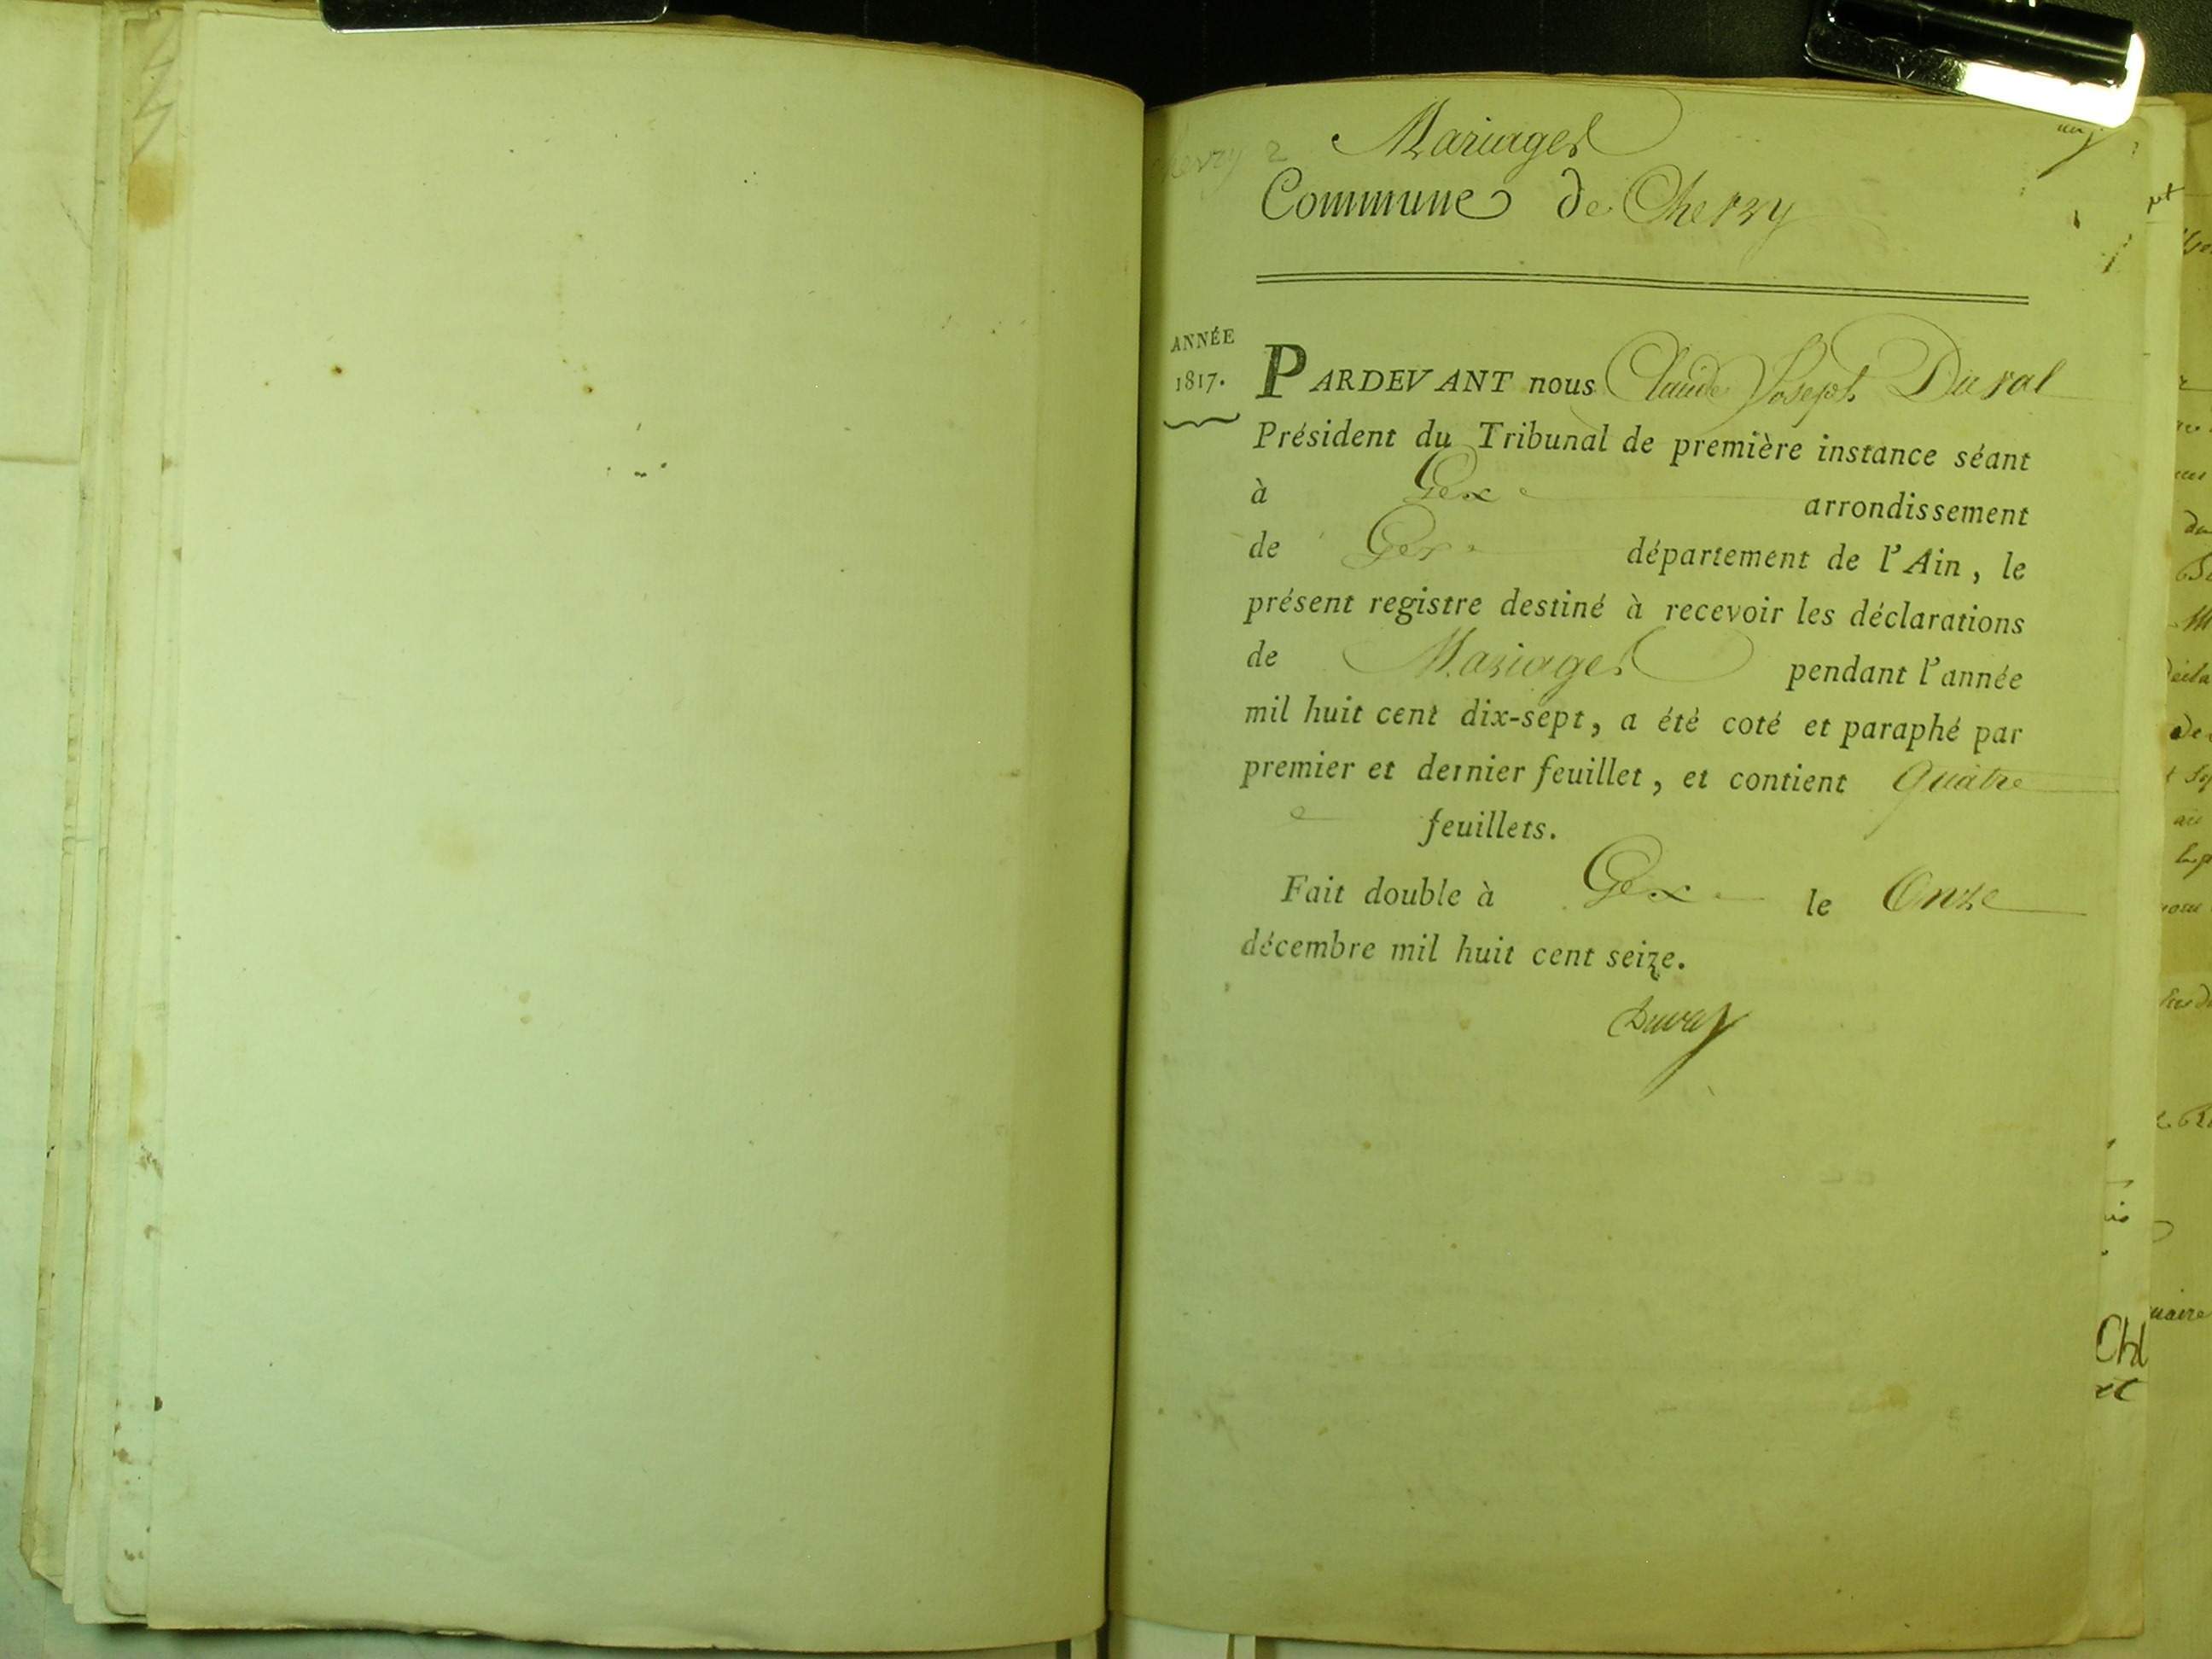 Mariages
Commune de Chevry
ANNÉE
1817.
PARDEVANT nous Claude Joseph Duval
Président du Tribunal de première instance séant
à Gex arrondissement
de Gex département de l'Ain, le
présent registre destiné à recevoir les déclarations
de Mariages pendant l'année
mil huit cent dix-sept, a été coté et paraphé par
premier et dernier feuillet, et contient quatre
feuillets.
Fait double à Gex le Onze
décembre mil huit cent seize.
Duval